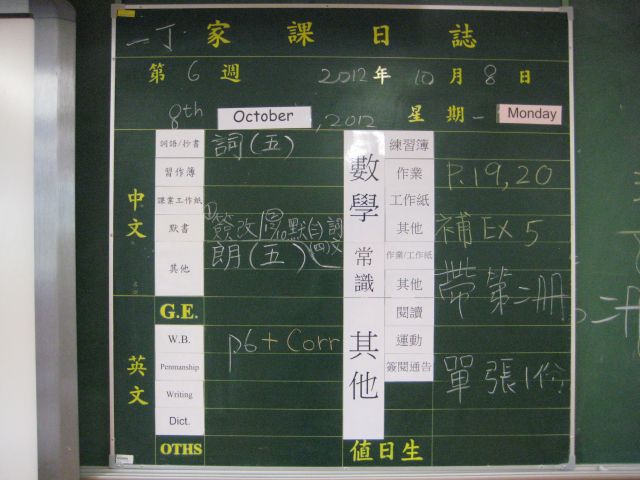 一丁 家課日誌
第 6 週 2012年 10月 8日
8th October, 2012 星期一 Monday
中文
詞語/抄書 詞(五)
習作簿
課業工作紙
默書 簽改
其他 朗(五)
G.E.
英文
W.B. p6 + Corr
Penmanship
Writing
Dict.
OTHS
數學
練習簿
作業 P.19,20
工作紙
其他 補 EX 5
常識
作業/工作紙
其他 帶第二冊
其他
閱讀
運動
簽閱通告 單張1份
值日生